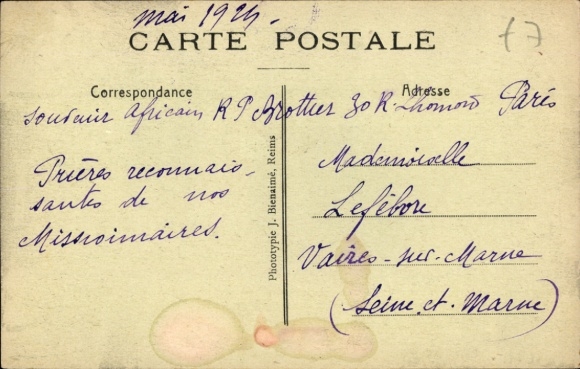 mai 1924.
CARTE POSTALE
f7
Correspondance
Adresse
Souvenir africain R P Brottier 30 R. Lhomond Paris
Prières reconnais-
santes de nos
Missionnaires.
Phototypie J. Bienaimé, Reims
Mademoiselle
Lefébvre
Vaires-sur-Marne
(Seine et Marne)